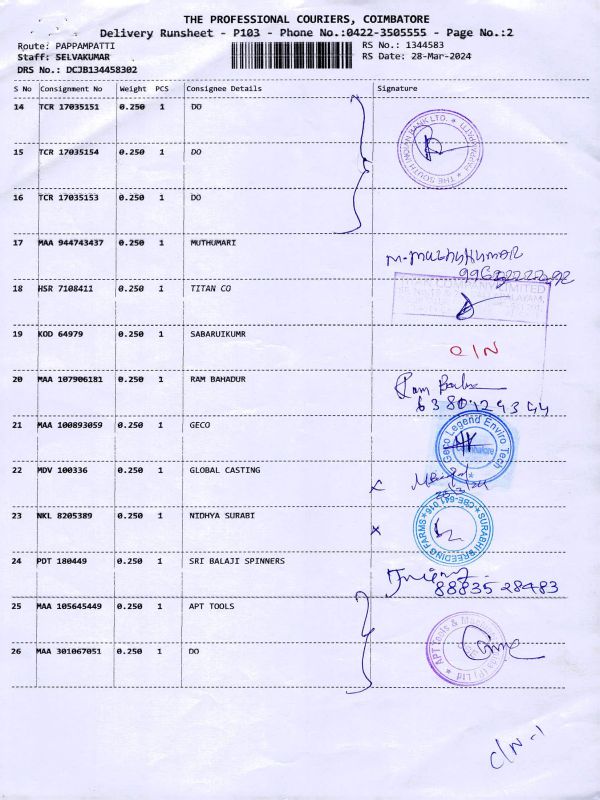 THE PROFESSIONAL COURIERS, COIMBATORE
Delivery Runsheet - P103 - Phone No.:0422-3505555 - Page No.:2
Route: PAPPAMPATTI RS No.: 1344583
Staff: SELVAKUMAR RS Date: 28-Mar-2024
DRS No.: DCJB134458302
S No Consignment No Weight PCS Consignee Details Signature
14 TCR 17035151 0.250 1 DO
THE SOUTH INDIAN BANK LTD.
15 TCR 17035154 0.250 1 DO
16 TCR 17035153 0.250 1 DO
17 MAA 944743437 0.250 1 MUTHUMARI
18 HSR 7108411 0.250 1 TITAN CO
COMPANY LIMITED
19 KOD 64979 0.250 1 SABARUIKUMR O/N
20 MAA 107906181 0.250 1 RAM BAHADUR Ram
21 MAA 100893059 0.250 1 GECO
Geco Legend Enviro Tech
Coimbatore
22 MDV 100336 0.250 1 GLOBAL CASTING
23 NKL 8205389 0.250 1 NIDHYA SURABI
SURABHI BREEDING FARMS CBE-641 016
24 PDT 180449 0.250 1 SRI BALAJI SPINNERS
88835 28483
25 MAA 105645449 0.250 1 APT TOOLS
APT Tools & Machinery India (P) Ltd
26 MAA 301067051 0.250 1 DO
C/N-1